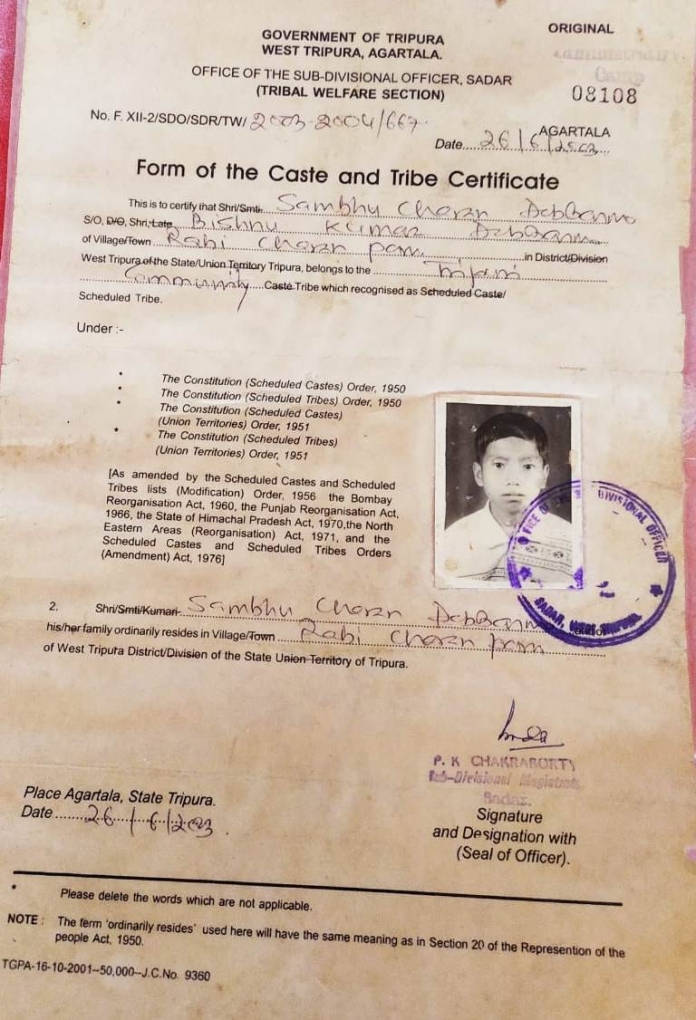 ORIGINAL
GOVERNMENT OF TRIPURA
WEST TRIPURA, AGARTALA.
Administrative
Camp
OFFICE OF THE SUB-DIVISIONAL OFFICER, SADAR
(TRIBAL WELFARE SECTION)
08108
No. F. XII-2/SDO/SDR/TW/ 2003-2004/667.
AGARTALA
Date....26/6/2003
Form of the Caste and Tribe Certificate
This is to certify that Shri/Smti. Sambhu Charan DebBarma
S/O, D/O, Shri, Late Bishnu Kumar DebBarma
of Village/Town Rabi Charan para in District/Division
West Tripura of the State/Union Territory Tripura, belongs to the
Community Caste Tribe which recognised as Scheduled Caste/
Scheduled Tribe.
Under :-
• The Constitution (Scheduled Castes) Order, 1950
• The Constitution (Scheduled Tribes) Order, 1950
• The Constitution (Scheduled Castes)
(Union Territories) Order, 1951
• The Constitution (Scheduled Tribes)
(Union Territories) Order, 1951
[As amended by the Scheduled Castes and Scheduled
Tribes lists (Modification) Order, 1956 the Bombay
Reorganisation Act, 1960, the Punjab Reorganisation Act,
1966, the State of Himachal Pradesh Act, 1970,the North
Eastern Areas (Reorganisation) Act, 1971, and the
Scheduled Castes and Scheduled Tribes Orders
(Amendment) Act, 1976]
OFFICE OF THE SUB DIVISIONAL OFFICER
SADAR, WEST TRIPURA
2. Shri/Smti/Kumari Sambhu Charan DebBarma
his/her family ordinarily resides in Village/Town Rabi Charan para
of West Tripura District/Division of the State Union Territory of Tripura.
P. K CHAKRABORTY
Sub-Divisional Magistrate
Sadar.
Signature
and Designation with
(Seal of Officer).
Place Agartala, State Tripura.
Date......26/6/2003.
* Please delete the words which are not applicable.
NOTE : The term 'ordinarily resides' used here will have the same meaning as in Section 20 of the Represention of the
people Act, 1950.
TGPA-16-10-2001--50,000--J.C.No. 9360